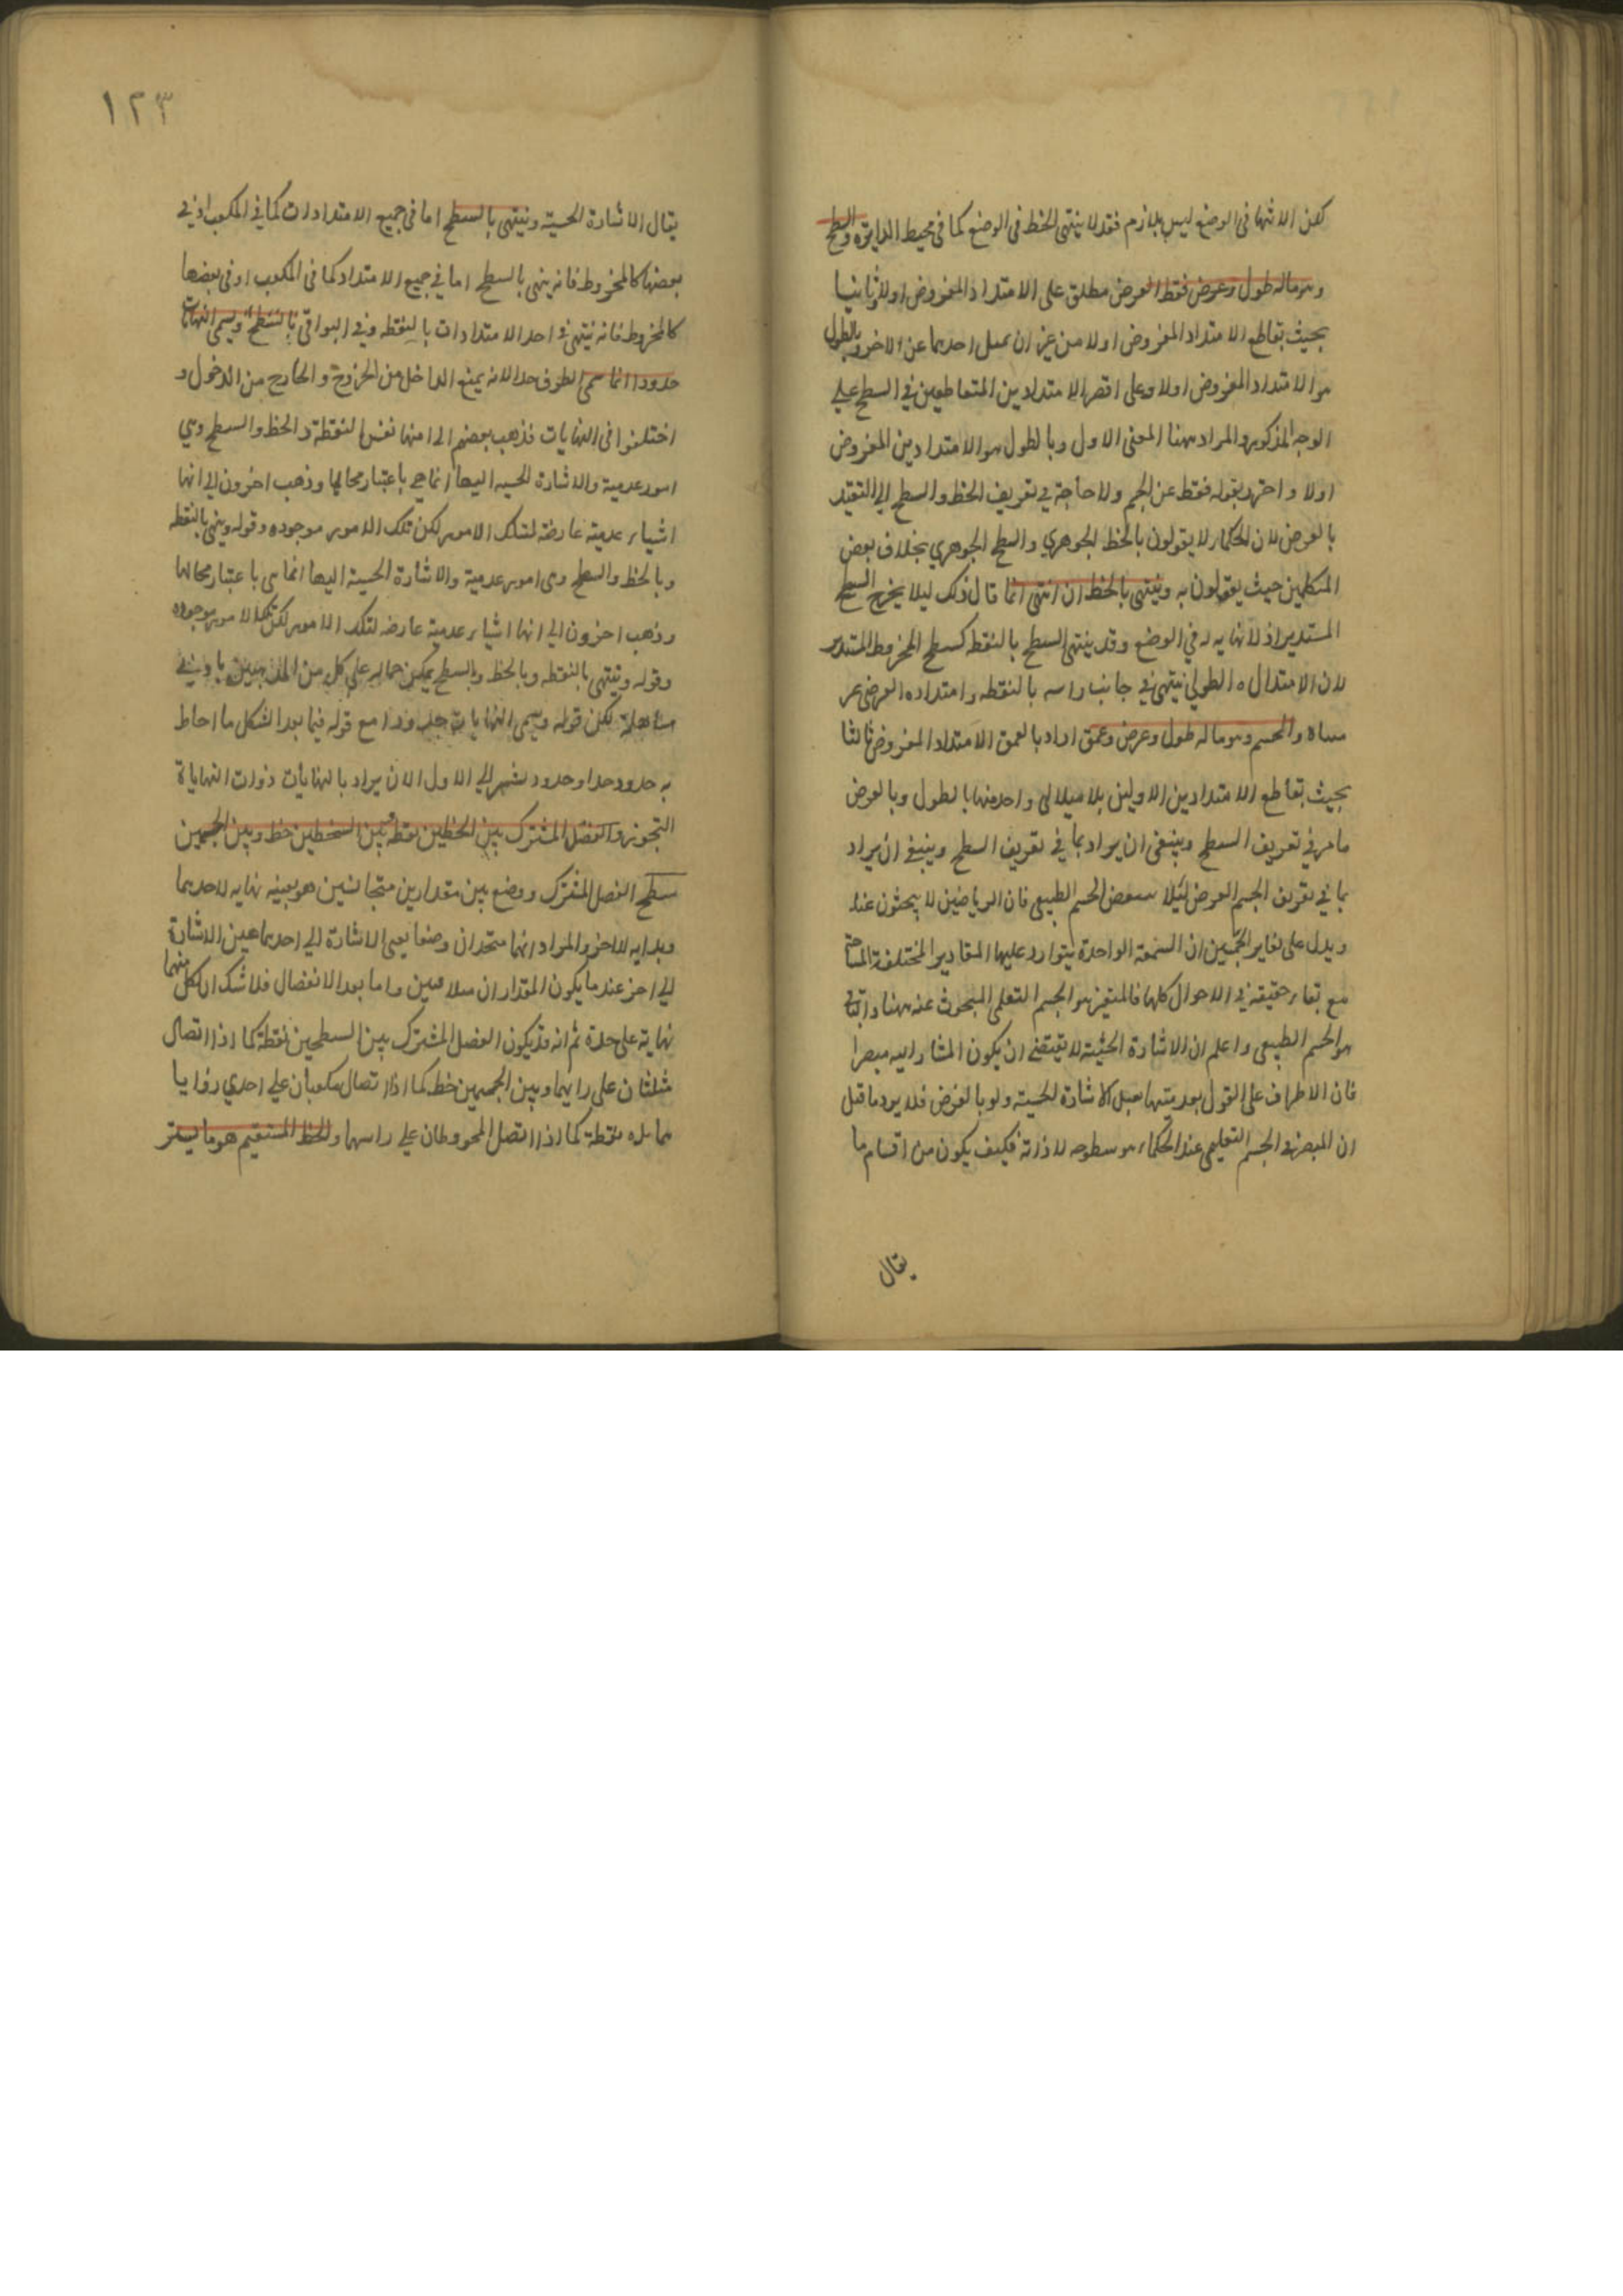 لكن الانتهاء في الوضع ليس بلازم فقد لا ينتهي الخط في الوضع كما في محيط الدايرة والسطح
وهو ماله طول وعرض فقط العرض مطلق على الامتداد المفروض اولا وثانيا
بحيث تقاطع الامتداد المفروض اولا من غير ان يميل احديهما عن الاخر وبالطول
هو الامتداد المفروض اولا وعلى اقصر الامتدادين المتقاطعين في السطح على
الوجه المذكور والمراد ههنا المعنى الاول وبالطول هو الامتدادين المفروض
اولا واحترز بقوله فقط عن الجسم ولا حاجة في تعريف الخط والسطح الى التقيد
بالعرض لان الحكماء لا يقولون بالخط الجوهري والسطح الجوهري بخلاف بعض
المتكلمين حيث يقولون به وينتهى بالخط ان انتهى انما قال ذلك ليلا يخرج السطح
المستدير اذ لا نهايه له في الوضع وقد ينتهى السطح بالنقطه كسطح المخروط المستدير
لان الامتداده الطولي ينتهي في جانب راسه بالنقطه وامتداده العرضى غير
متناه والجسم وهو ماله طول وعرض وعمق اراد بالعمق الامتداد المفروض ثالثا
بحيث تقاطع الامتدادين الاولين بلا ميلا لى واحد منها بالطول وبالعرض
ما مر في تعريف السطح وينبغى ان يراد بما في تعريف السطح وينبغي ان يراد
بما في تعريف الجسم العرض ليلا الجسم الطبيعى فان الرياضين لا يبحثون عنه
ويدل على تغاير الجسمين ان الشمعة الواحدة يتوارد عليها المقادير المختلفة
مع بقاء حقيقته في الاحوال كلها فالمتغير هو الجسم التعلمى المبحوث عنه ههنا والباقى
هو الجسم الطبيعى واعلم ان الاشارة الحسية لا تقتضى ان يكون المشار اليه مبصرا
فان الاطراف على القول بعدميتها تقبل الاشارة الحسية ولو بالفرض فلا يرد ما قيل
ان المبصر في الجسم التعليمى عند الحكماء هو سطوحه لا ذاته فكيف يكون من اقسام ما
يقال
١٢٣
يقال الاشارة الحسية وينتهى بالسطح اما في جميع الامتدادات كما في المكعب او في
بعضها كالمخروط فانه ينتهى بالسطح اما في جميع الامتداد كما في المكعب او في بعضها
كالمخروط فانه ينتهى في احد الامتدادات بالنقطه وفي البواقي بالسطح ويسمى النهايات
حدودا انما سمى الطرف حدا لانه يمنع الداخل من الخروج والخارج من الدخول و
اختلفوا في النهايات فذهب بعضهم الى انها نفس النقطة والخط والسطح وهي
امور عدمية والاشارة الحسيه اليها انما هي باعتبار محالها وذهب اخرون الى انها
اشياء عدمية عارضة لتلك الامور لكن تلك الامور موجوده وقوله وينتهى بالنقطه
وبالخط والسطح وهى امور عدمية والاشارة الحسية اليها انما هى باعتبار محالها
وذهب اخرون الى انها اشياء عدمية عارضه لتلك الامور لكن تلك الامور موجوده
وقوله وينتهى بالنقطه وبالخط وبالسطح يمكن حمله على كل من المذهبين باد وني
مساهلة لكن قوله ويسمى النهايات حدودا مع قوله فيما بعد الشكل ما احاط
به حدود حدا وحدود يشير الى الاول الا ان يراد بالنهايات ذوات النهاياة
التجوز والفصل المشترك بين الخطين نقطة وبين السطحين خط وبين الجسمين
سطح الفصل المشترك ووضع بين مقدارين متجانسين هو بعينه نهايه لاحديهما
وبدايه للاخر والمراد انهما متحدان وضعا يعنى الاشارة الى احديهما عين الاشارة
الى اخر عندما يكون المقداران متلاصقين واما بعد الانفصال فلا شك ان لكل منهما
نهاية على حدة ثم انه قد يكون الفصل المشترك بين السطحين نقطة كما اذا اتصال
مثلثان على رايهما وبين الجسمين خط كما اذا اتصال مكعبان على احدى زوايا
نقطة كما اذا اتصل المخروطان على راسهما والخط المستقيم هو ما يستر